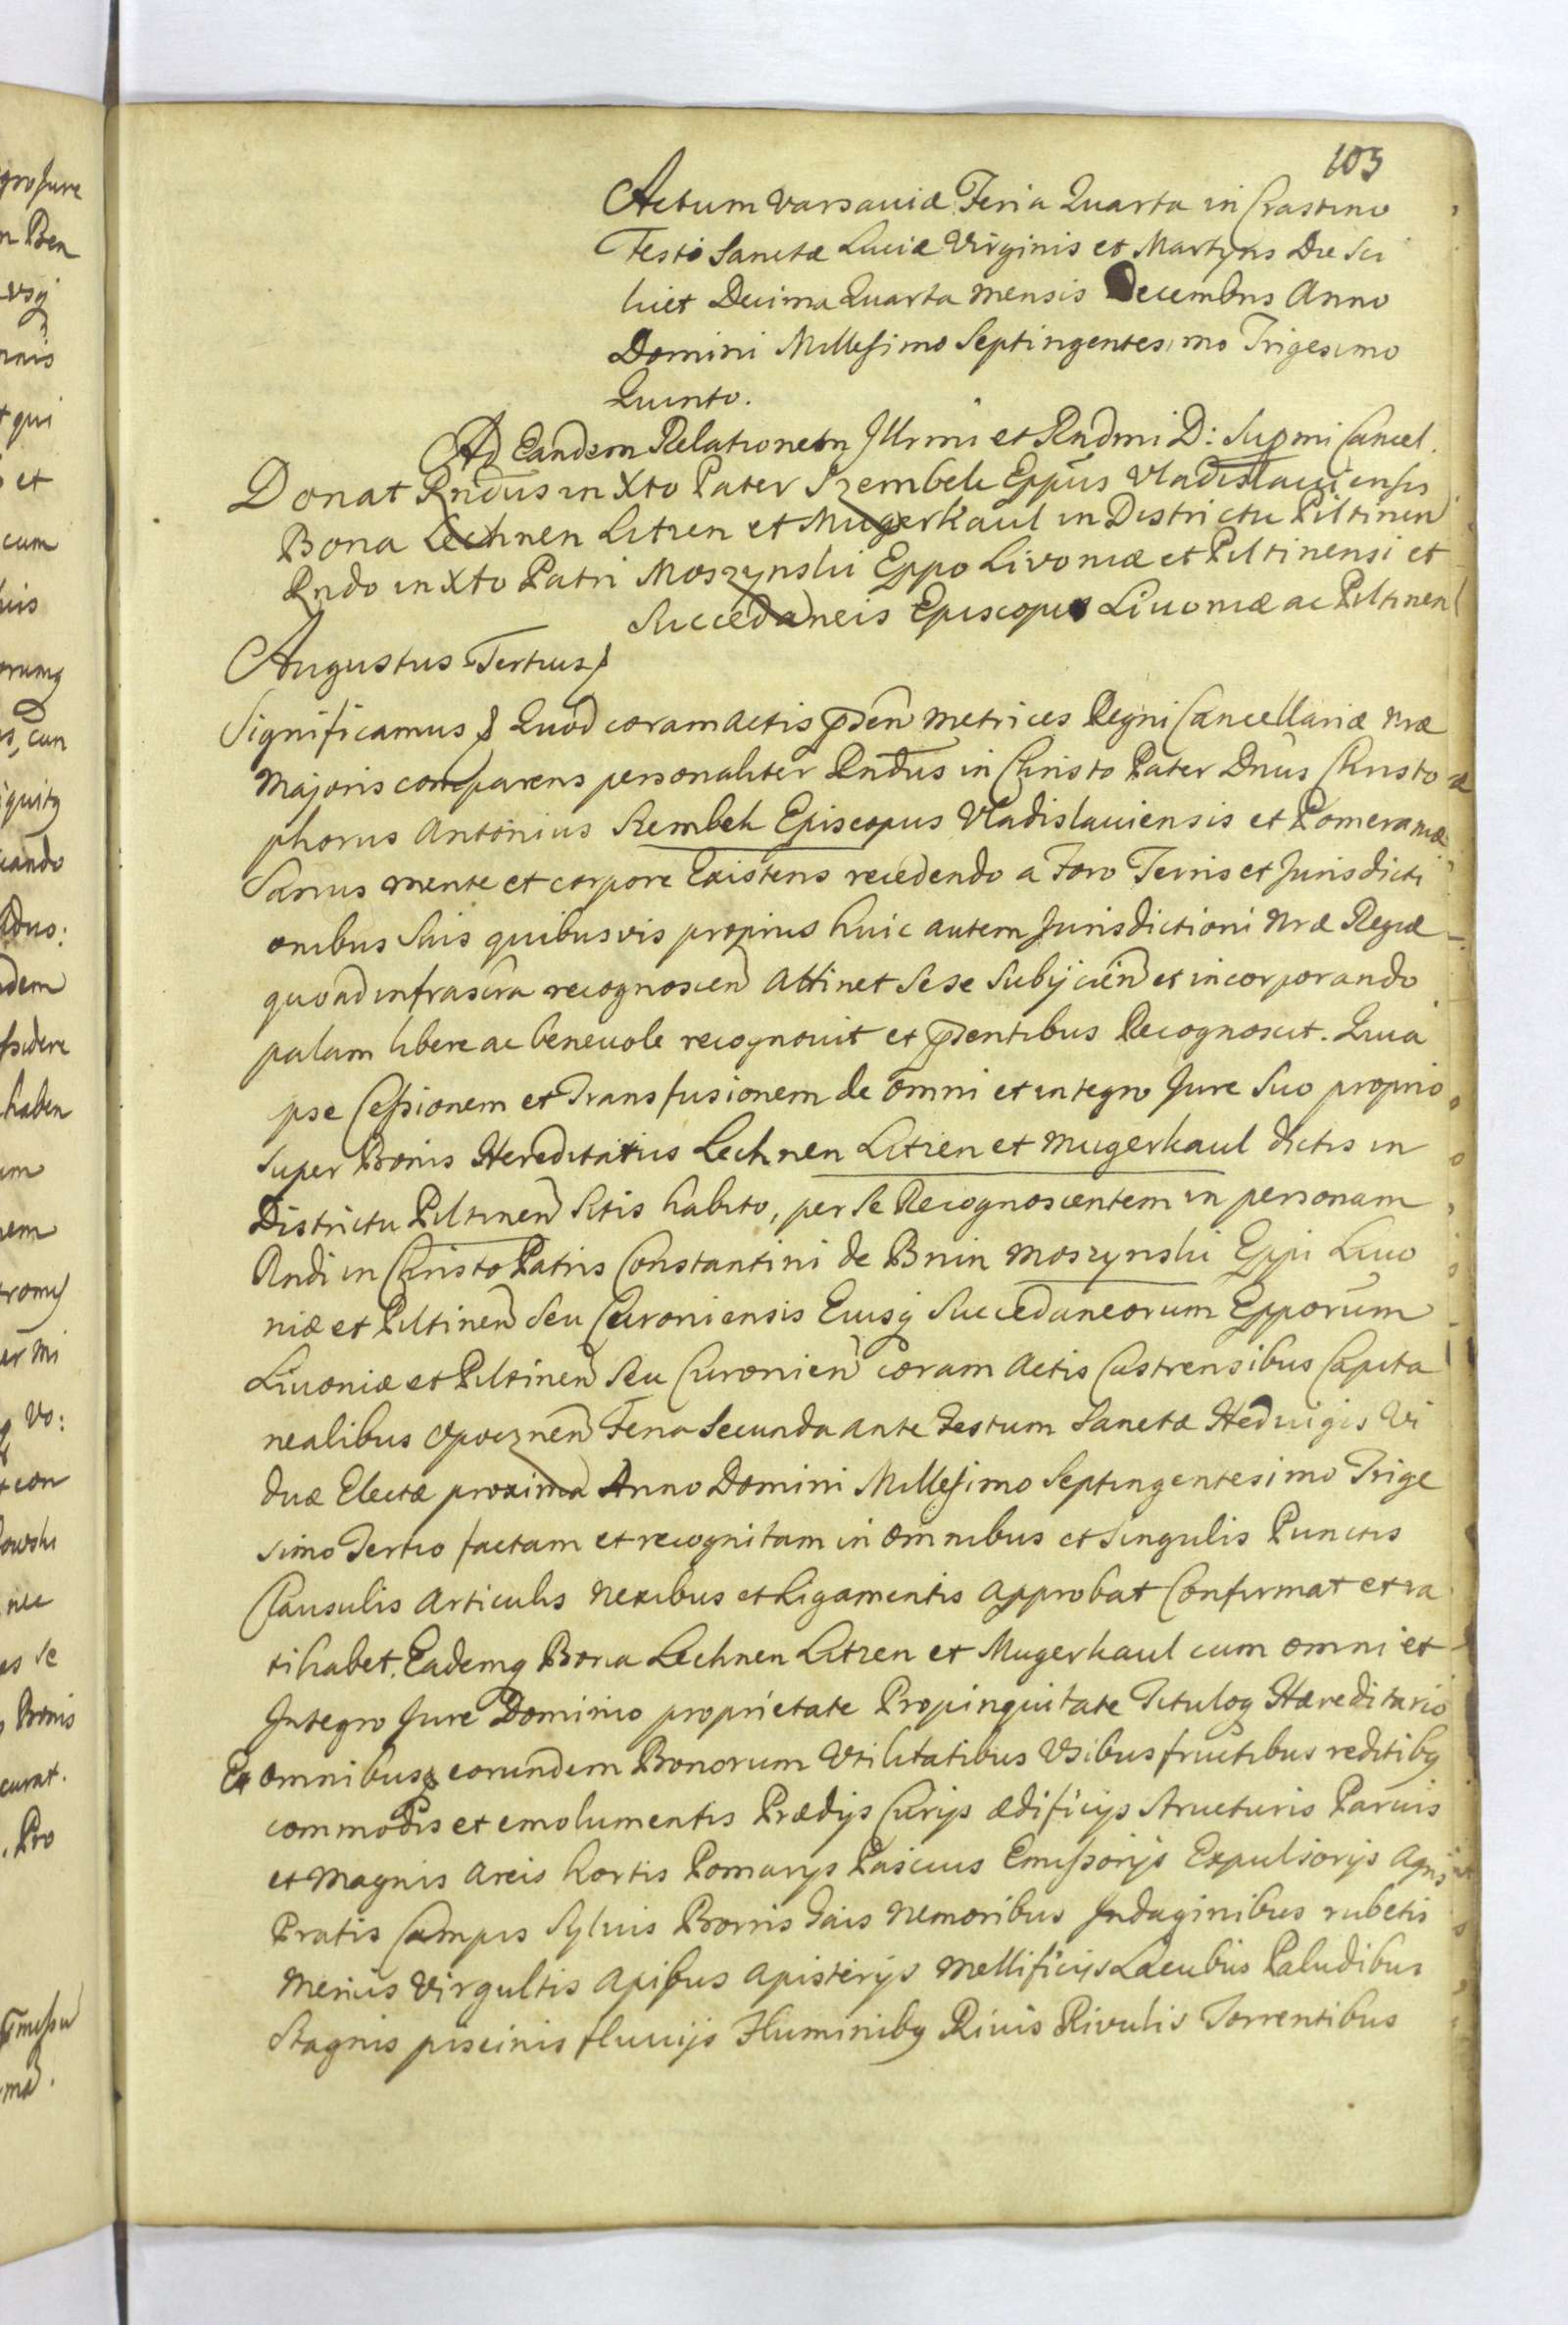 103
Actum Varsaviæ Feria Quarta in Crastino
Festi Sanctæ Luciæ Virginis et Martyris Die Sci
licet Decima Quarta mensis Decembris Anno
Domini Millesimo Septingentesimo Trigesimo
Quinto.
Ad Eandem Relationem Illrmi et Rndmi D: Supmi Cancel.
Donat Rndus in Xto Pater Szembek Eppus Vladislauiensis
Bona Lechnen Litzen et Mugerkaul in Districtu Piltinen
Rndo in Xto Patri Moszynski Eppo Livoniæ et Piltinensi et
Succedaneis Episcopis Liuoniæ ac Piltinen
Augustus Tertius
Significamus Quod coram Actis pñsen Metrices Regni Cancellariæ Nræ
Majoris comparens personaliter Rndus in Christo Pater Dnus Christo
phorus Antonius Szembek Episcopus Vladislauiensis et Pomeraniæ
Sanus mente et corpore Existens recedendo a Foro Terris et Jurisdicti
onibus Suis quibusvis proprijs huic autem Jurisdictioni Nræ Regiæ
quoad infrascra recognoscen attinet Sese Subijcien et incorporando
palam libere ac beneuole recognouit et pñsentibus Recognoscit. Quia
ipse Cessionem et Transfusionem de omni et integro Jure Suo proprio
Super Bonis Hereditarijs Lechnen Litzen et Mugerkaul dictis in
Districtu Piltinen Sitis habito, per Se Recognoscentem in personam
Rndi in Christo Patris Constantini de Bnin Moszynski Eppi Liuo
niæ et Piltinen Seu Curoniensis Eiusq Succedaneorum Epporum
Liuoniæ et Piltinen Seu Curonien coram Actis Castrensibus Capita
nealibus Opocznen Feria Secunda ante Festum Sanctæ Hedwigis Vi
duæ Electæ proxima Anno Domini Millesimo Septingentesimo Trige
simo Tertio factam et recognitam in omnibus et Singulis Punctis
Clausulis Articulis Nexibus et Ligamentis approbat Confirmat et ra
tihabet. Eademq Bona Lechnen Litzen et Mugerkaul cum omni et
Integro Jure Dominio proprietate Propinquitate Tituloq Hæreditario
Et omnibusq eorundem Bonorum Vtilitatibus Vsibus fructibus reditibq
commodis et emolumentis Prædijs Curijs ædificijs Structuris Paruis
et Magnis Areis hortis Pomarijs Pascuis Emissorijs Expulsorijs Agris
Pratis Campis Syluis Borris Gais Nemoribus Indaginibus rubetis
Mericis Virgultis Apibus Apisterijs Mellificijs Lacubus Paludibus
Stagnis piscinis fluuijs Fluminibq Riuis Rivulis Torrentibus